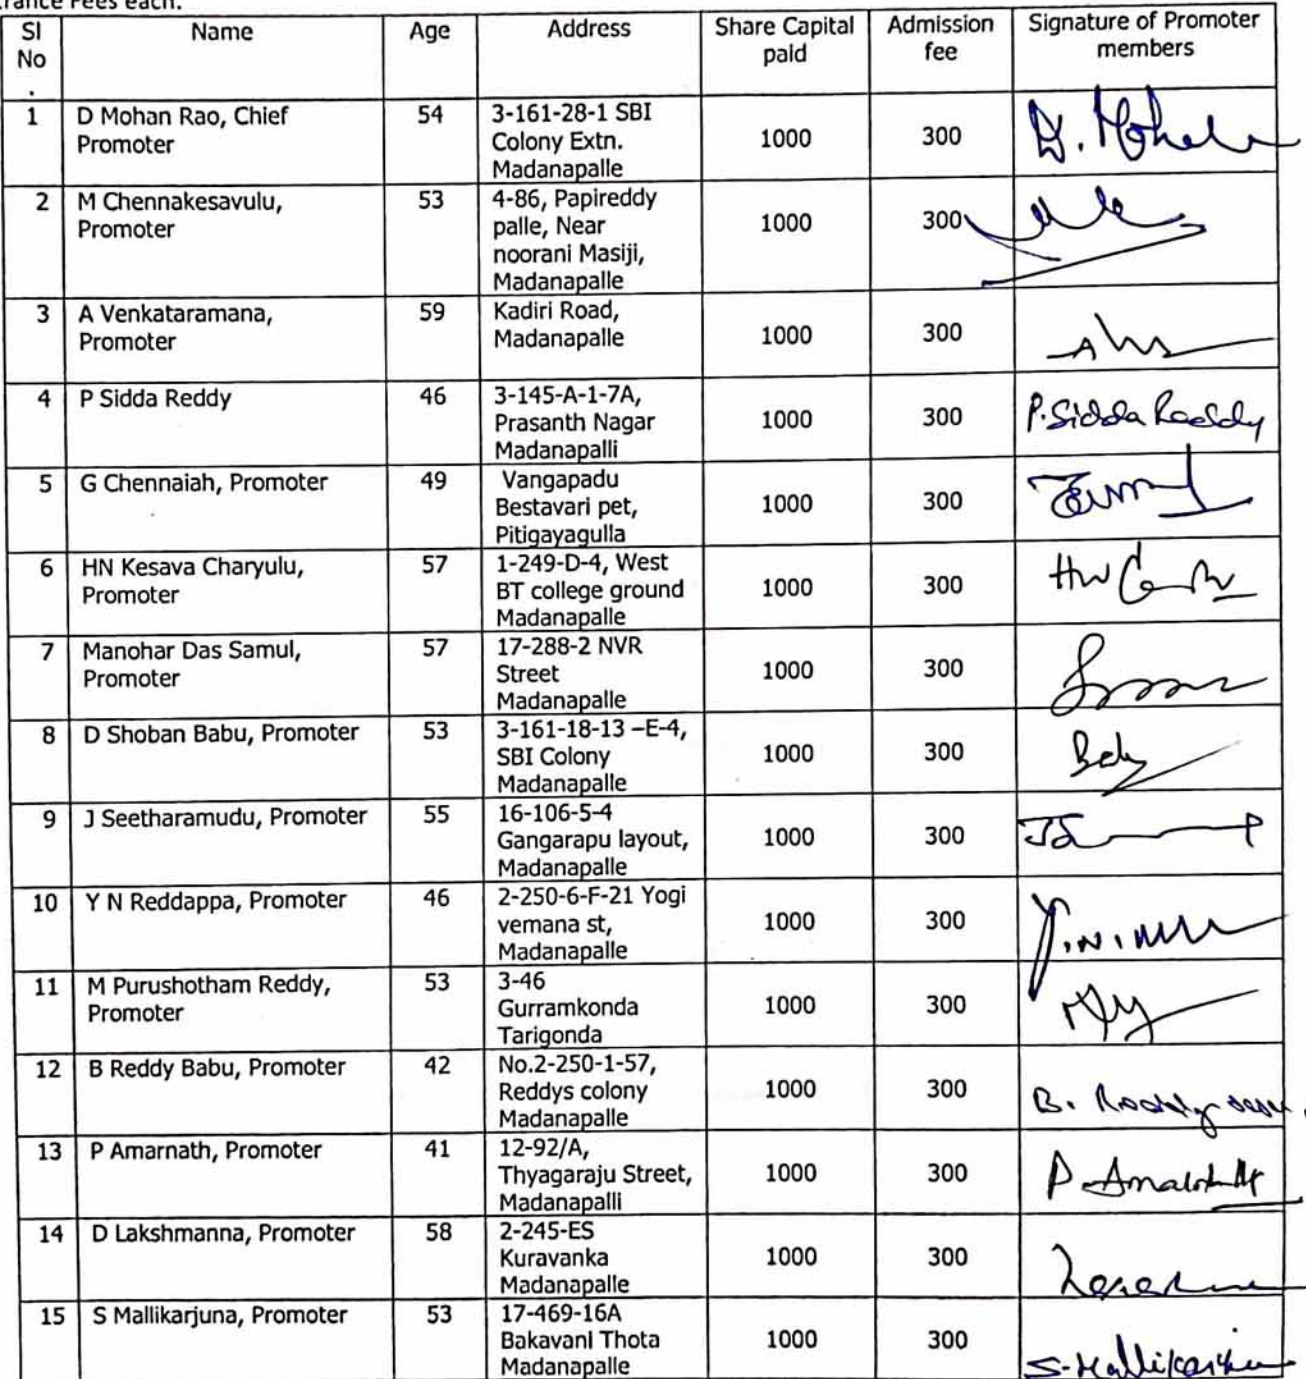 trance Fees each.
Sl No . Name Age Address Share Capital paid Admission fee Signature of Promoter members
1 D Mohan Rao, Chief Promoter 54 3-161-28-1 SBI Colony Extn. Madanapalle 1000 300 D. Moha
2 M Chennakesavulu, Promoter 53 4-86, Papireddy palle, Near noorani Masiji, Madanapalle 1000 300
3 A Venkataramana, Promoter 59 Kadiri Road, Madanapalle 1000 300
4 P Sidda Reddy 46 3-145-A-1-7A, Prasanth Nagar Madanapalli 1000 300 P. Sidda Reddy
5 G Chennaiah, Promoter 49 Vangapadu Bestavari pet, Pitigayagulla 1000 300
6 HN Kesava Charyulu, Promoter 57 1-249-D-4, West BT college ground Madanapalle 1000 300
7 Manohar Das Samul, Promoter 57 17-288-2 NVR Street Madanapalle 1000 300
8 D Shoban Babu, Promoter 53 3-161-18-13 –E-4, SBI Colony Madanapalle 1000 300
9 J Seetharamudu, Promoter 55 16-106-5-4 Gangarapu layout, Madanapalle 1000 300
10 Y N Reddappa, Promoter 46 2-250-6-F-21 Yogi vemana st, Madanapalle 1000 300
11 M Purushotham Reddy, Promoter 53 3-46 Gurramkonda Tarigonda 1000 300
12 B Reddy Babu, Promoter 42 No.2-250-1-57, Reddys colony Madanapalle 1000 300 B. Reddy
13 P Amarnath, Promoter 41 12-92/A, Thyagaraju Street, Madanapalli 1000 300 P. Amarnath
14 D Lakshmanna, Promoter 58 2-245-ES Kuravanka Madanapalle 1000 300
15 S Mallikarjuna, Promoter 53 17-469-16A Bakavani Thota Madanapalle 1000 300 S. Mallikarjuna